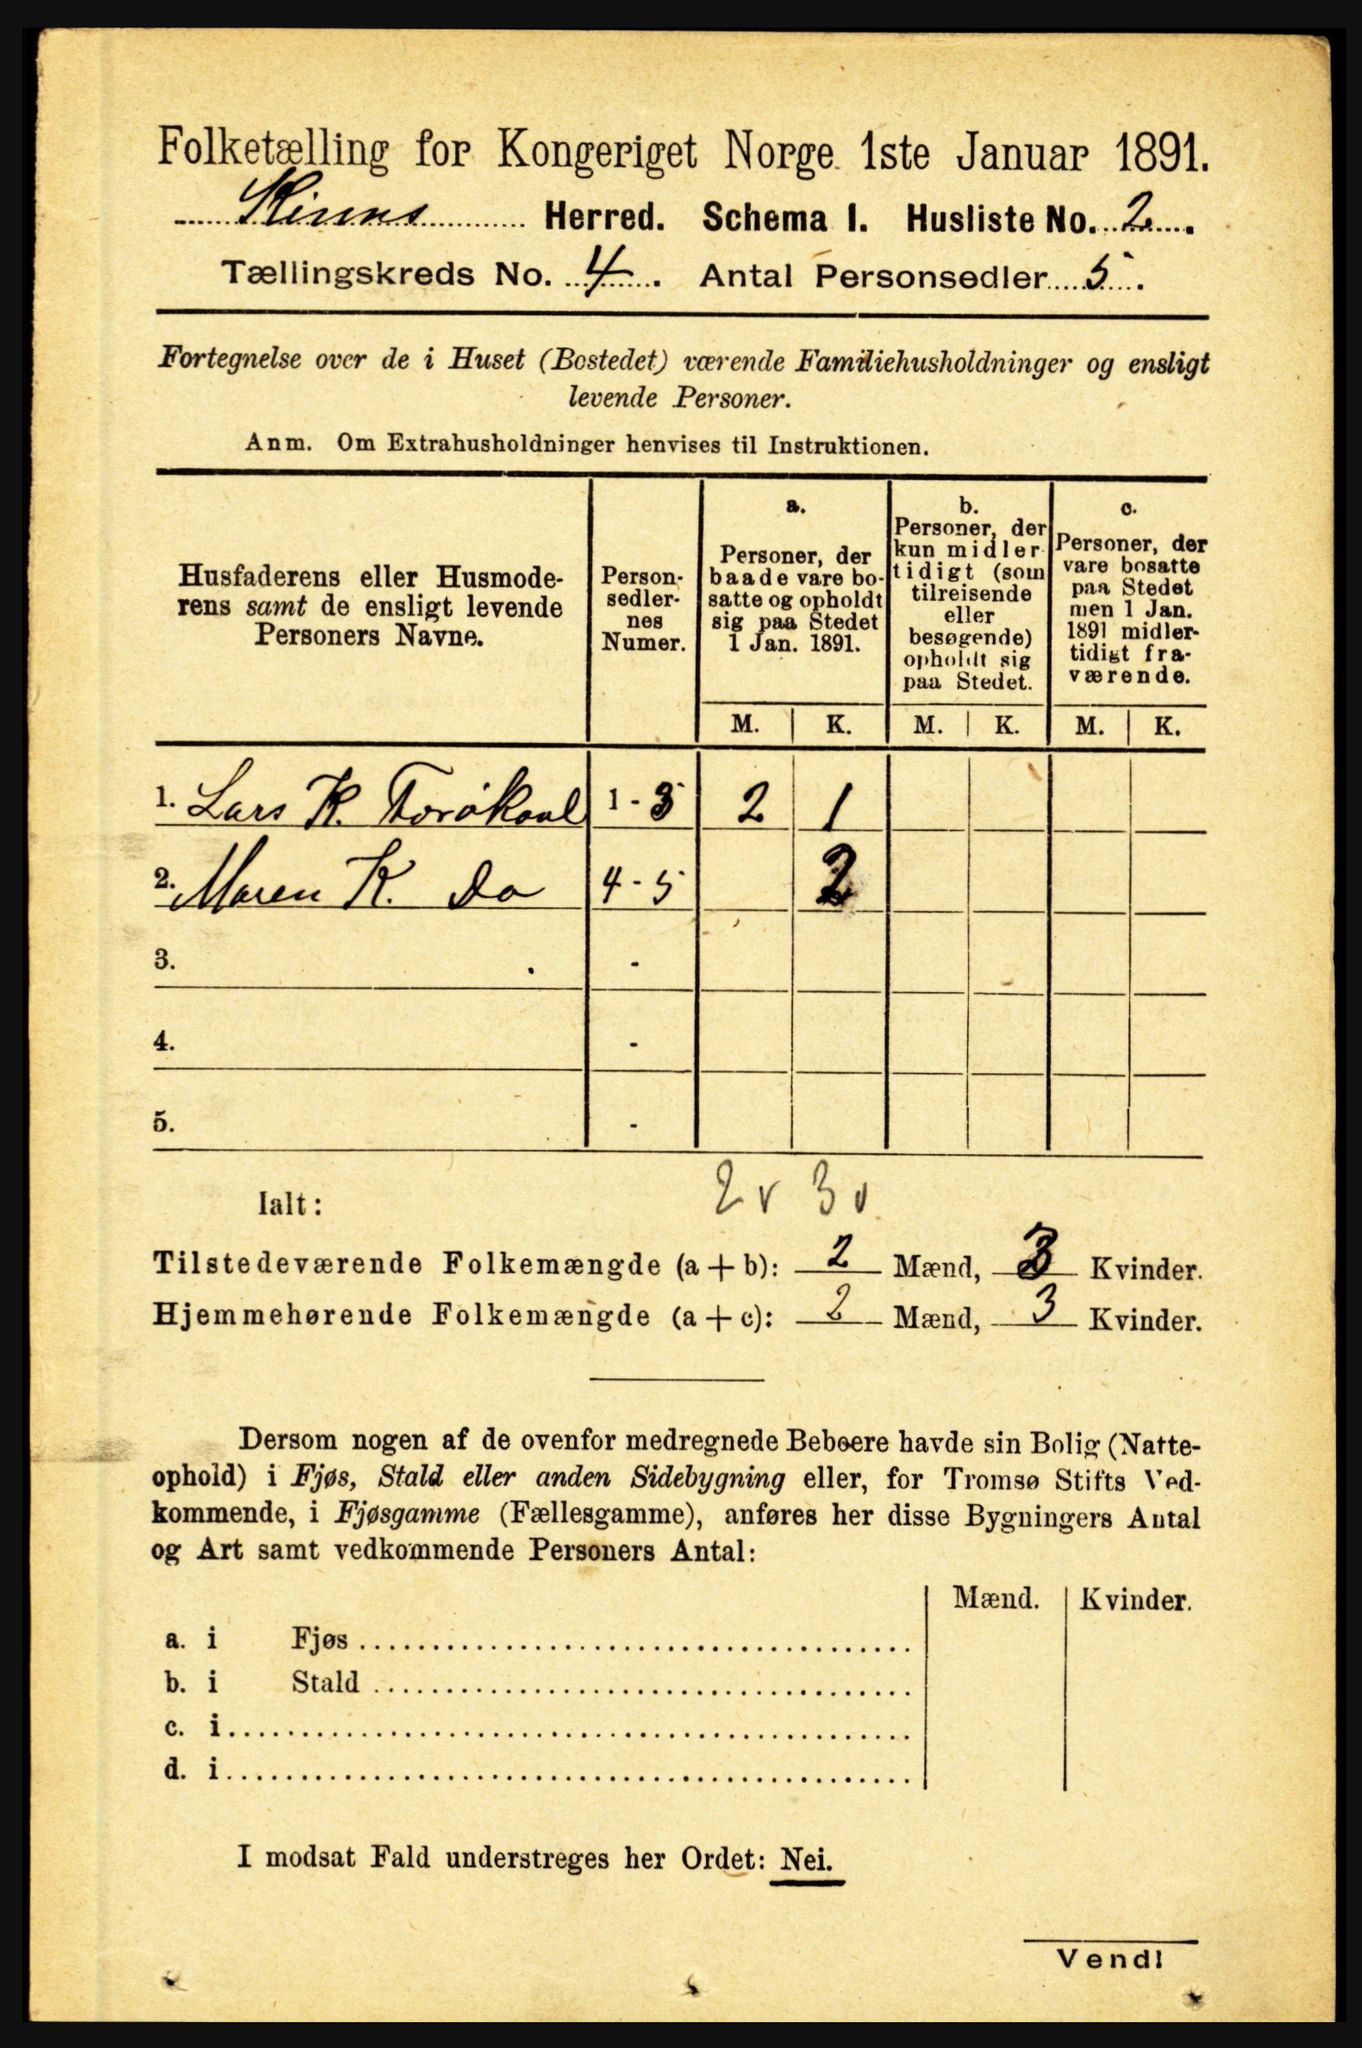 Folketælling for Kongeriget Norge 1ste Januar 1891.
Kinns Herred. Schema I. Husliste No. 2.
Tællingskreds No. 4. Antal Personsedler 5.
Fortegnelse over de i Huset (Bostedet) værende Familiehusholdninger og ensligt
levende Personer.
Anm. Om Extrahusholdninger henvises til Instruktionen.
Husfaderens eller Husmode-
rens samt de ensligt levende
Personers Navne.
Person-
sedler-
nes
Numer.
a.
Personer, der
baade vare bo-
satte og opholdt
sig paa Stedet
1 Jan. 1891.
b.
Personer, der
kun midler-
tidigt (som
tilreisende
eller
besøgende)
opholdt sig
paa Stedet.
c.
Personer, der
vare bosatte
paa Stedet
men 1 Jan.
1891 midler-
tidigt fra-
værende.
M. K. M. K. M. K.
1. Lars K. 1 - 3 2 1
2. Maren K. Do 4 - 5 2
3. -
4. -
5. -
2 v 3 v
Ialt:
Tilstedeværende Folkemængde (a + b): 2 Mænd, 3 Kvinder.
Hjemmehørende Folkemængde (a + c): 2 Mænd, 3 Kvinder.
Dersom nogen af de ovenfor medregnede Beboere havde sin Bolig (Natte-
ophold) i Fjøs, Stald eller anden Sidebygning eller, for Tromsø Stifts Ved-
kommende, i Fjøsgamme (Fællesgamme), anføres her disse Bygningers Antal
og Art samt vedkommende Personers Antal:
Mænd. Kvinder.
a. i Fjøs
b. i Stald
c. i
d. i
I modsat Fald understreges her Ordet: Nei.
Vend!